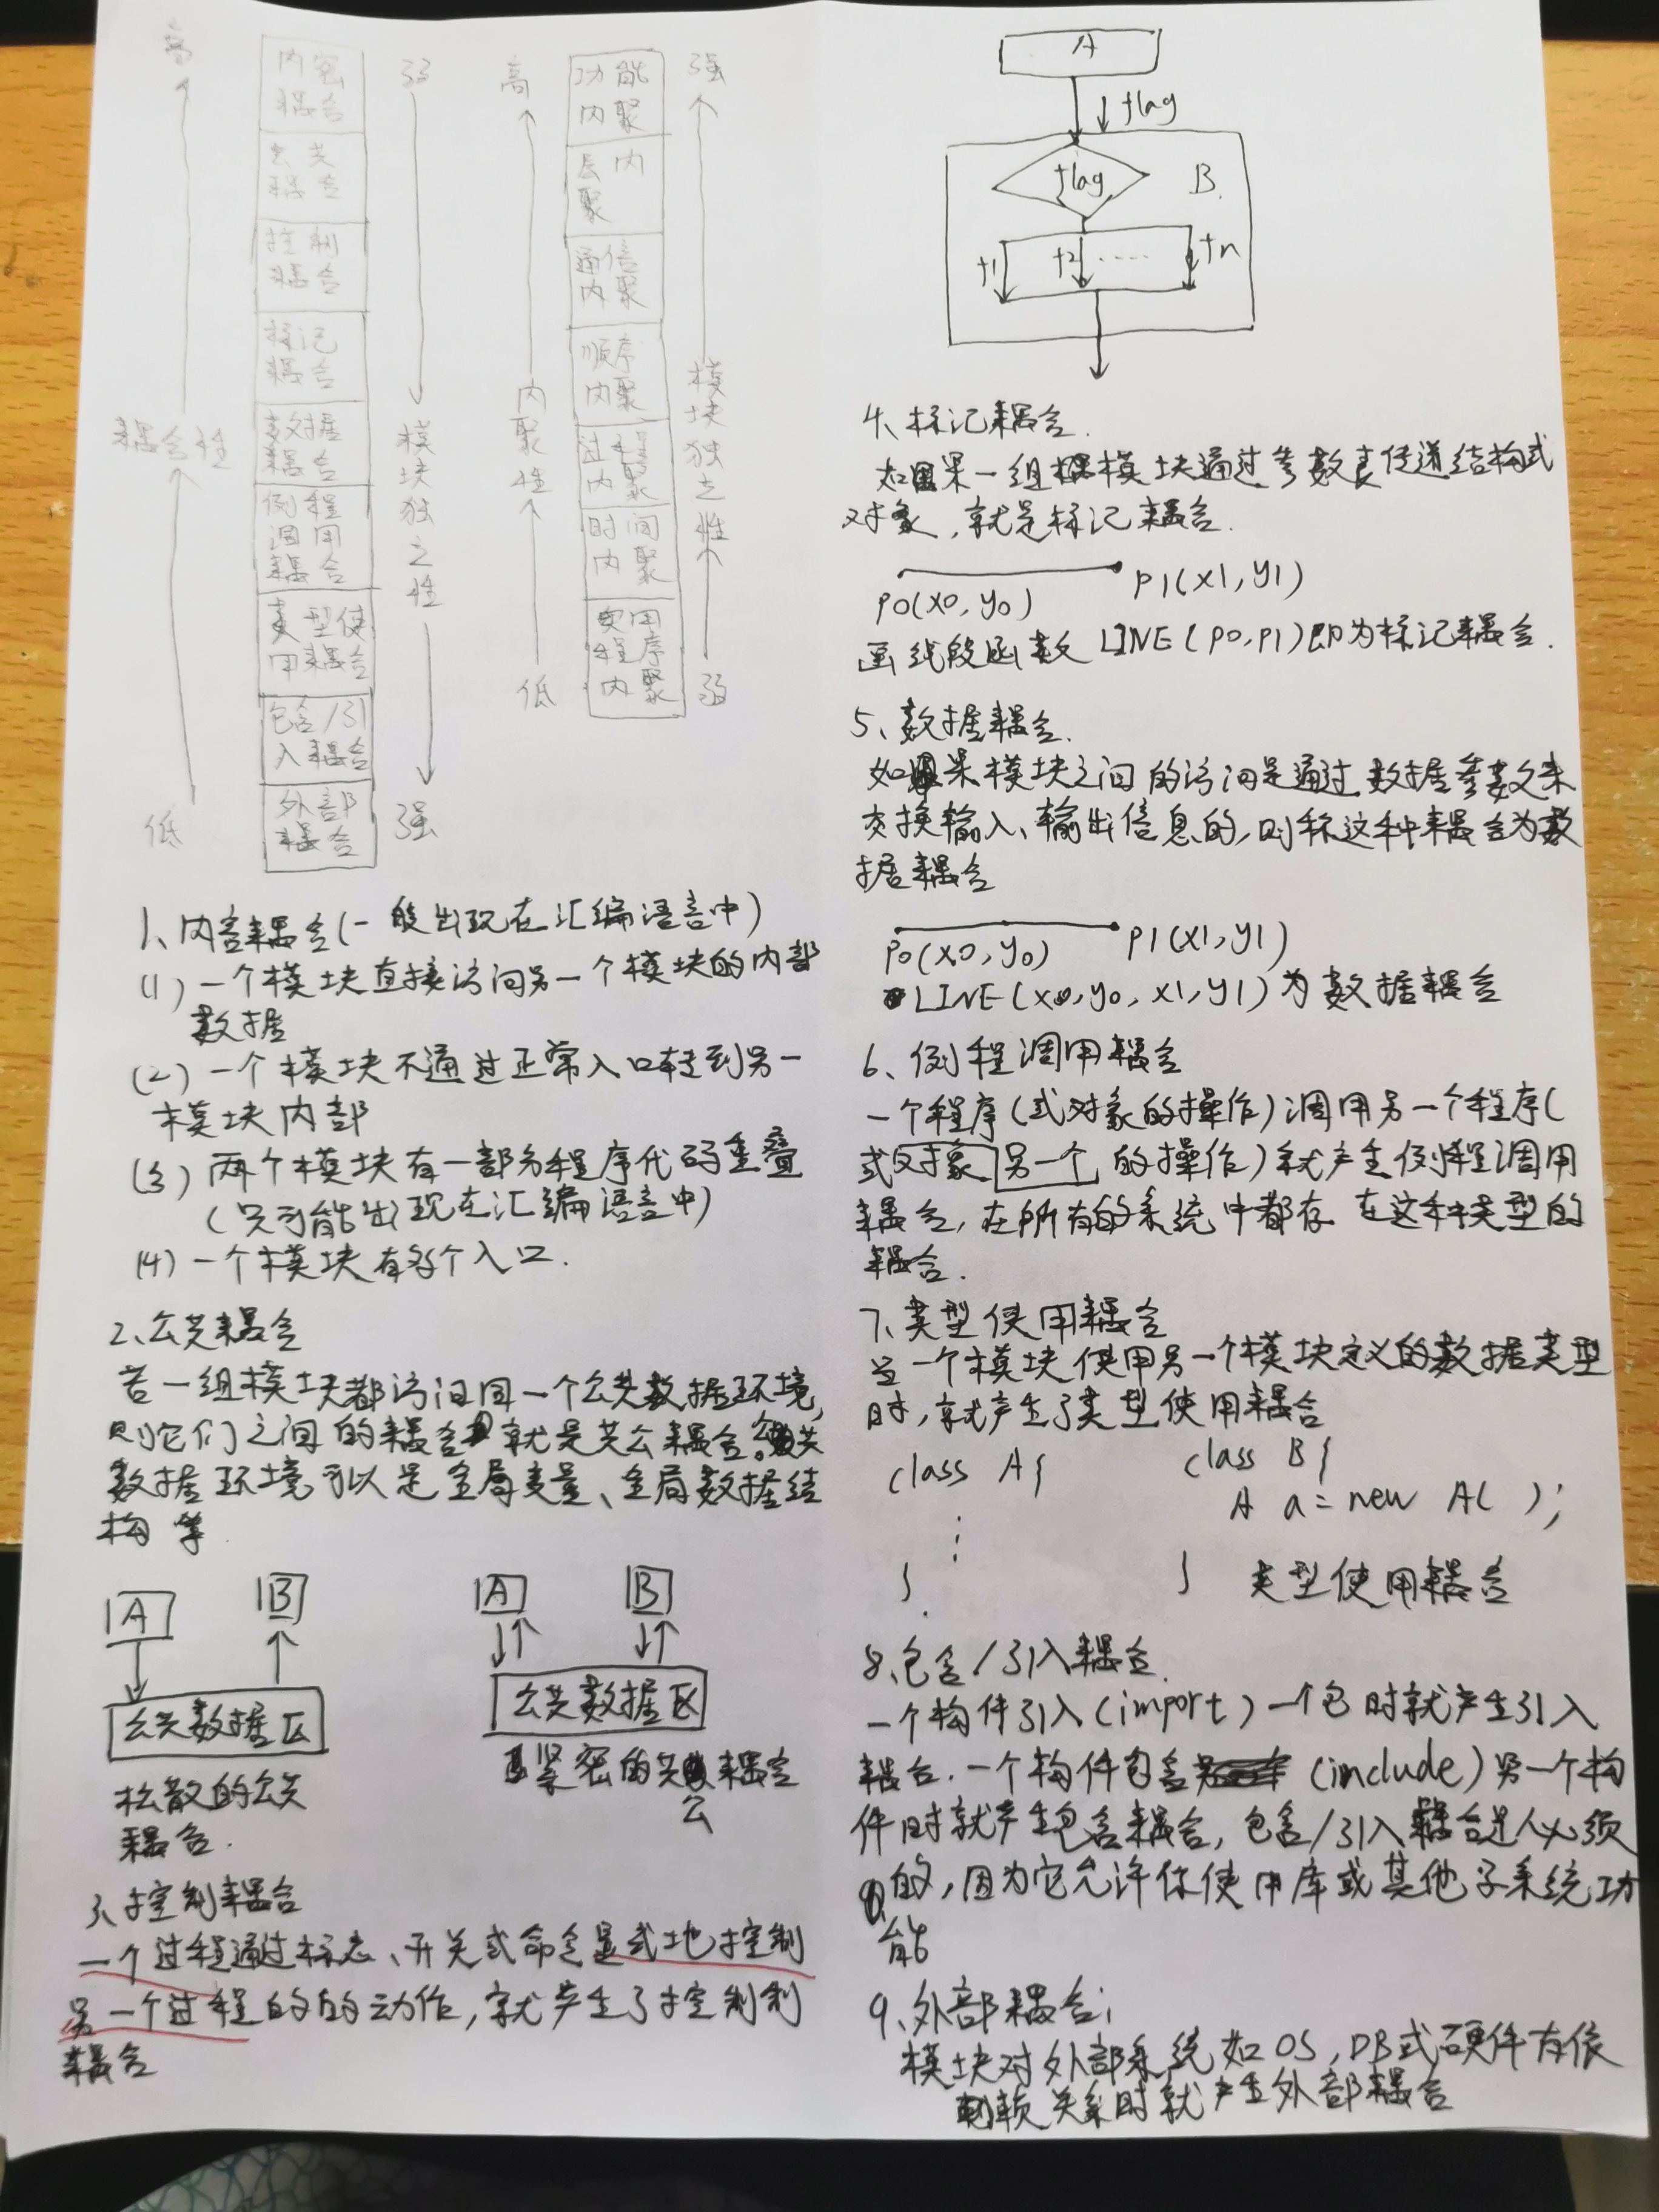 高
耦合性
低
内容
耦合
公共
耦合
控制
耦合
标记
耦合
数据
耦合
例程
调用
耦合
类型使
用耦合
包含/引
入耦合
外部
耦合
弱
模块独立性
强
高
内聚性
低
功能
内聚
层内
聚
通信
内聚
顺序
内聚
过程
内聚
时间
内聚
实用
程序
内聚
强
模块独立性
弱
1、内容耦合(一般出现在汇编语言中)
(1)一个模块直接访问另一个模块的内部
数据
(2)一个模块不通过正常入口转到另一
模块内部
(3)两个模块有一部分程序代码重叠
(只可能出现在汇编语言中)
(4)一个模块有多个入口.
2、公共耦合
若一组模块都访问同一个公共数据环境,
则它们之间的耦合就是共公耦合。公共
数据环境可以是全局变量、全局数据结
构等
A
B
公共数据区
松散的公共
耦合.
A
B
公共数据区
紧密的公共耦合
3、控制耦合
一个过程通过标志、开关或命令显式地控制
另一个过程的的动作,就产生了控制制
耦合
A
flag
flag
B.
f1
f2
....
fn
4、标记耦合.
如果一组模块通过参数表传递结构式
对象,就是标记耦合.
P0(x0,y0)
P1(x1,y1)
画线段函数LINE(P0,P1)即为标记耦合.
5、数据耦合.
如果模块之间的访问是通过数据参数来
交换输入、输出信息的,则称这种耦合为数
据耦合
P0(x0,y0)
P1(x1,y1)
LINE(x0,y0,x1,y1)为数据耦合
6、例程调用耦合
一个程序(或对象的操作)调用另一个程序(
或对象另一个的操作)就产生例程调用
耦合,在所有的系统中都存在这种类型的
耦合.
7、类型使用耦合
当一个模块使用另一个模块定义的数据类型
时,就产生了类型使用耦合
class A{
⋮
}
class B{
A a=new A( );
}
类型使用耦合
8、包含/引入耦合.
一个构件引入(import)一个包时就产生引入
耦合.一个构件包含(include)另一个构
件时就产生包含耦合,包含/引入耦合是必须
的,因为它允许你使用库或其他子系统功
能
9、外部耦合;
模块对外部系统如OS,DB或硬件有依
赖关系时就产生外部耦合